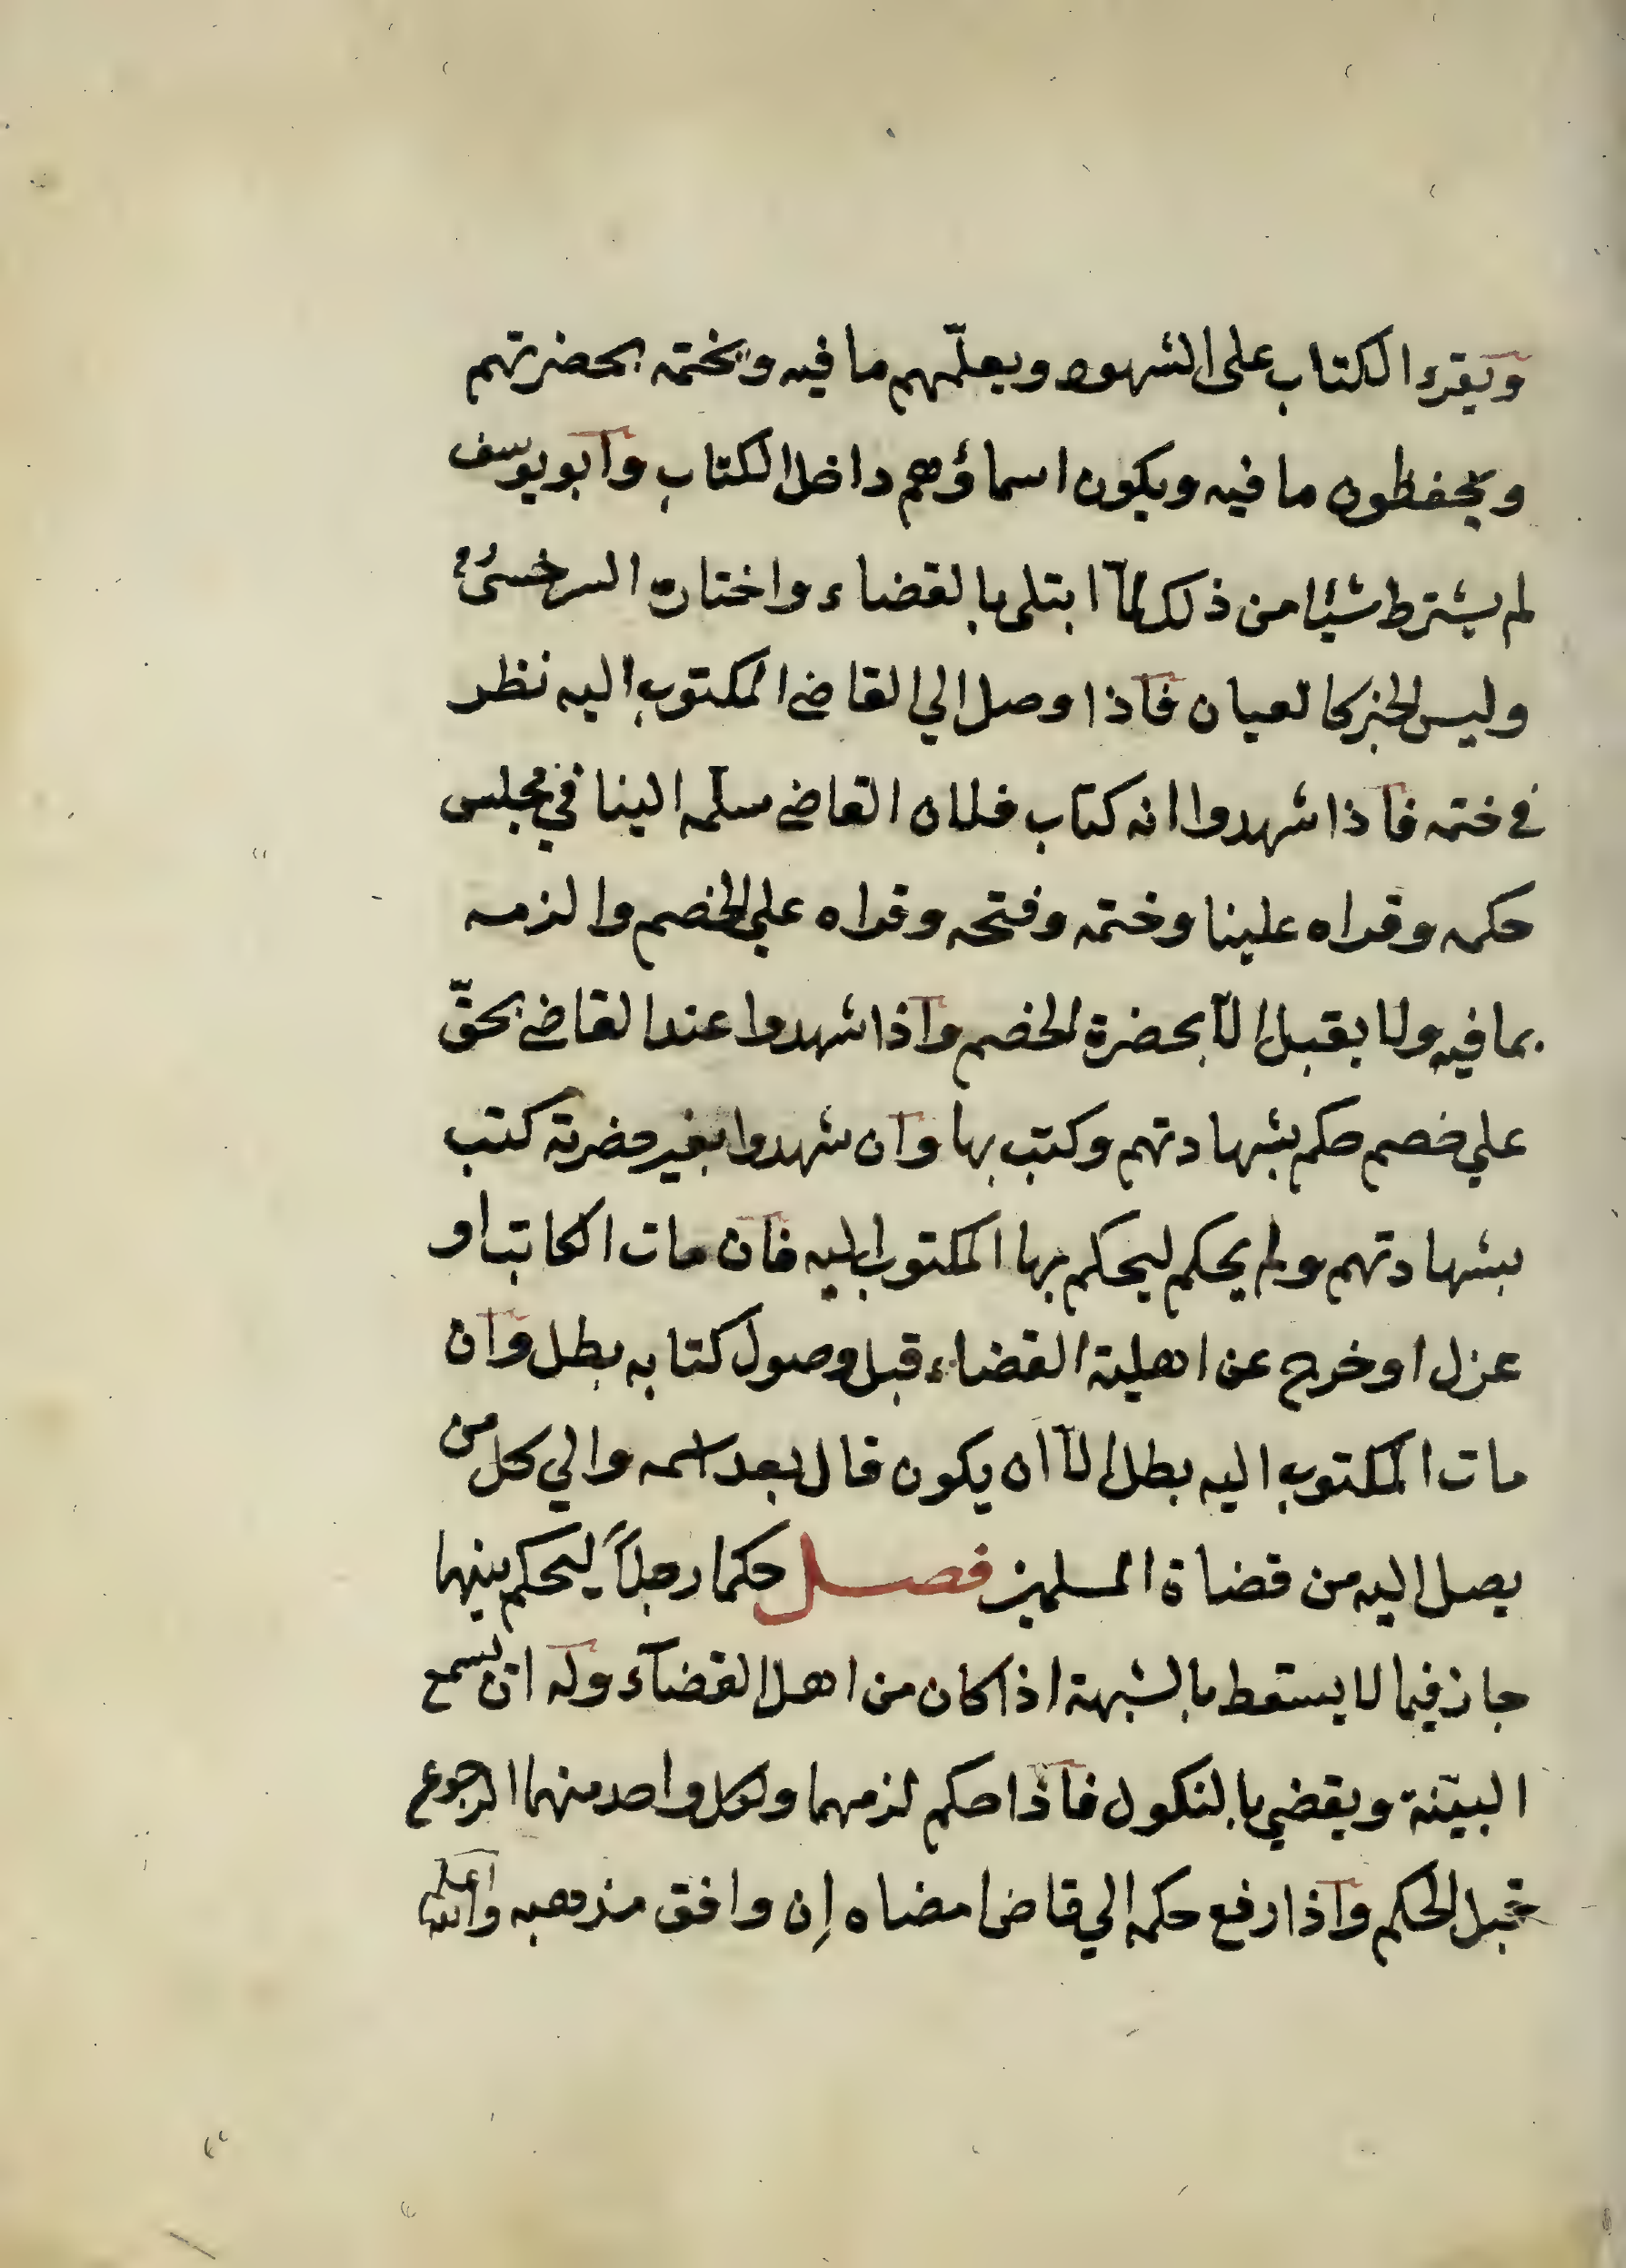 ويقرء الكتاب على الشهود ويعلّمهم ما فيه ويختمه بحضرتهم
ويحفظون ما فيه ويكون اسماؤهم داخل الكتاب وابو يوسف
لم يشترط شيئا من ذلك لمّا ابتلى بالقضاء واختاره السرخسى
وليس الخبر كالعيان فاذا وصل الي القاضي المكتوب اليه نظر
في ختمه فاذا شهدوا انه كتاب فلان القاضي سلمه الينا في مجلس
حكمه وقراه علينا وختمه وفتحه وقراه علي الخصم والزمه
بما فيه ولا يقبل الّا بحضرة الخصم واذا شهدوا عند القاضي بحقّ
علي خصم حكم بشهادتهم وكتب بها وان شهدوا بغير حضرته كتب
بشهادتهم ولم يحكم ليحكم بها المكتوب اليه فان مات الكاتب او
عزل او خرج عن اهلية القضاء قبل وصول كتابه بطل وان
مات المكتوب اليه بطل الّا ان يكون قال بعد اسمه والي كل من
يصل اليه من قضاة المسلمين فصل حكما رجلاً ليحكم بينهما
جاز فيما لا يسقط بالشبهة اذا كان من اهل القضآء وله ان يسمع
البيّنة ويقضي بالنكول فاذا حكم لزمهما ولكل واحد منهما الرجوع
قبل الحكم واذا رفع حكمه الي قاض امضاه إن وافق مذهبه والله اعلم